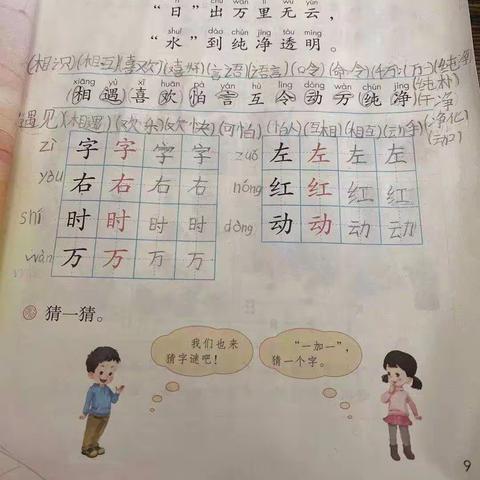 “日”出万里无云，
shuǐ dào chún jìng tòu míng
“水”到纯净透明。
(相识)(相互)(喜欢)(喜好)(言语)(语言)(口令)(命令)(千万)(万一)(纯净)
(纯朴)
xiāng yù xǐ huān pà yán hù lìng dòng wàn chún jìng
相遇喜欢怕言互令动万纯净
(干净
遇见)(相遇)(欢乐)(欢快)(可怕)(怕人)(互相)(相互)(动手)(净化)
(动口)
zì 字字字字 zuǒ 左左左左
yòu 右右右右 hóng 红红红红
shí 时时时时 dòng 动动动动
wàn 万万万万
猜一猜。
我们也来
猜字谜吧！
“一加一”，
猜一个字。
9